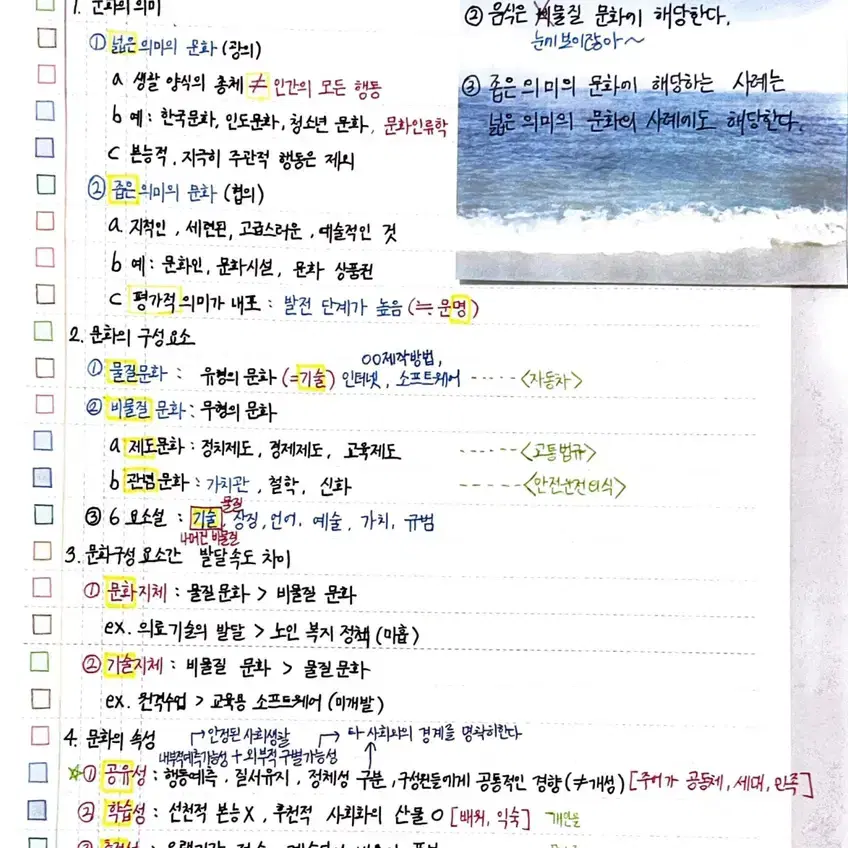 1. 문화의 의미
① 넓은 의미의 문화 (광의)
a 생활 양식의 총체 ≠ 인간의 모든 행동
b 예 : 한국문화, 인도문화, 청소년 문화, 문화인류학
c 본능적, 지극히 주관적 행동은 제외
② 좁은 의미의 문화 (협의)
a 지적인, 세련된, 고급스러운, 예술적인 것
b 예 : 문화인, 문화시설, 문화 상품권
c 평가적 의미가 내포 : 발전 단계가 높음 (≒ 문명)
② 음식은 비물질 문화에 해당한다.
눈에보이잖아~
③ 좁은 의미의 문화에 해당하는 사례는
넓은 의미의 문화의 사례에도 해당한다.
2. 문화의 구성요소
OO제작방법,
① 물질문화 : 유형의 문화 (=기술) 인터넷, 소프트웨어 ----- <자동차>
② 비물질 문화 : 무형의 문화
a 제도문화 : 정치제도, 경제제도, 교육제도 ------ <교통법규>
b 관념문화 : 가치관, 철학, 신화 ------ <안전운전의식>
물질
③ 6 요소설 : 기술, 상징, 언어, 예술, 가치, 규범
나머진 비물질
3. 문화구성 요소간 발달속도 차이
① 문화지체 : 물질문화 > 비물질 문화
ex. 의료기술의 발달 > 노인 복지 정책 (미흡)
② 기술지체 : 비물질 문화 > 물질문화
ex. 원격수업 > 교육용 소프트웨어 (미개발)
4. 문화의 속성
안정된 사회생활 타 사회와의 경계를 명확히한다
내부적예측가능성 + 외부적 구별가능성
① 공유성 : 행동예측, 질서유지, 정체성 구분, 구성원들에게 공통적인 경향 (≠개성) [주어가 공동체, 세대, 민족]
② 학습성 : 선천적 본능X, 후천적 사회화의 산물 O [배워, 익숙] 개인은